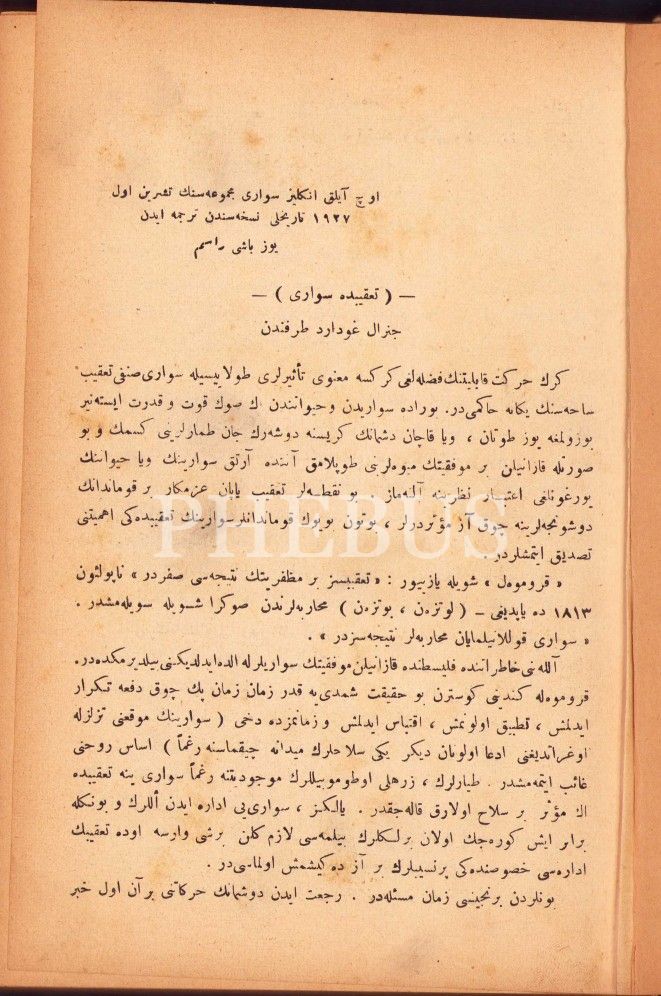 اوچ آیلق انکلیز سواری مجموعه‌سنك تشرین اول
١٩٢٧ تاریخلی نسخه‌سندن ترجمه ایدن
یوز باشی راسم
— ( تعقیبده سواری ) —
جنرال غودارد طرفندن
كرك حركت قابلیتنك فضله‌لغی كركسه معنوی تأثیرلری طولاییسیله سواری صنفی تعقیب
ساحه‌سنك یكانه حاكمی‌در. بوراده سواریدن و حیوانندن اك صوك قوت و قدرت ایسته‌نیر
بوزولمغه یوز طوتان ، ویا قاچان دشمانك كریسنه دوشه‌رك جان طمارلرینی كسمك و بو
صورتله قازانیلان بر موفقیتك میوه‌لرنی طوپلامق آننده آرتق سوارینك ویا حیواننك
یورغونلغی اعتبار نظرینه آلنماز . بو نقطه‌لر تعقیب یاپان عزمكار بر قوماندانك
دوشونجه‌لرینه چوق آز مؤثردرلر ، بوتون بویوك قوماندانلر سوارینك تعقیبده‌كی اهمیتنی
تصدیق ایتمشلردر .
« قروموه‌ل » شویله یازییور : « تعقیبسز بر مظفریتك نتیجه‌سی صفردر » ناپولئون
١٨١٣ ده یاپدیغی – ( لوتزه‌ن ، بوتزه‌ن ) محاربه‌لرندن صوكرا شویله سویله‌مشدر .
« سواری قوللانیلمایان محاربه‌لر نتیجه‌سزدر » .
آلله‌نبی خاطراتنده فلیسطنده قازانیلان موفقیتك سواریلرله الده ایدلدیكنی بیلدیرمكده‌در.
قروموه‌له كندینی كوسترن بو حقیقت شمدی‌یه قدر زمان زمان پك چوق دفعه تكرار
ایدلمش ، تطبیق اولونمش ، اقتباس ایدلمش و زمانمزده دخی ( سوارینك موقعنی تزلزله
اوغراتدیغی ادعا اولونان دیكر یكی سلاحلرك میدانه چیقماسنه رغماً ) اساس روحنی
غائب ایتمه‌مشدر . طیاره‌لرك ، زرهلی اوطوموبیللرك موجودیتنه رغماً سواری ینه تعقیبده
اك مؤثر بر سلاح اولارق قاله‌جقدر . یالكز ، سواری‌یی اداره ایدن أللرك و بونكله
برابر ایش كوره‌جك اولان برلكلرك بیلمه‌سی لازم كلن برشی وارسه اوده تعقیبك
اداره‌سی خصوصنده‌كی پرنسیپلرك بر آز ده‌كیشمش اولماسی‌در .
بونلردن برنجیسی زمان مسئله‌در . رجعت ایدن دوشمانك حركاتنی برآن اول خبر
PHEBUS